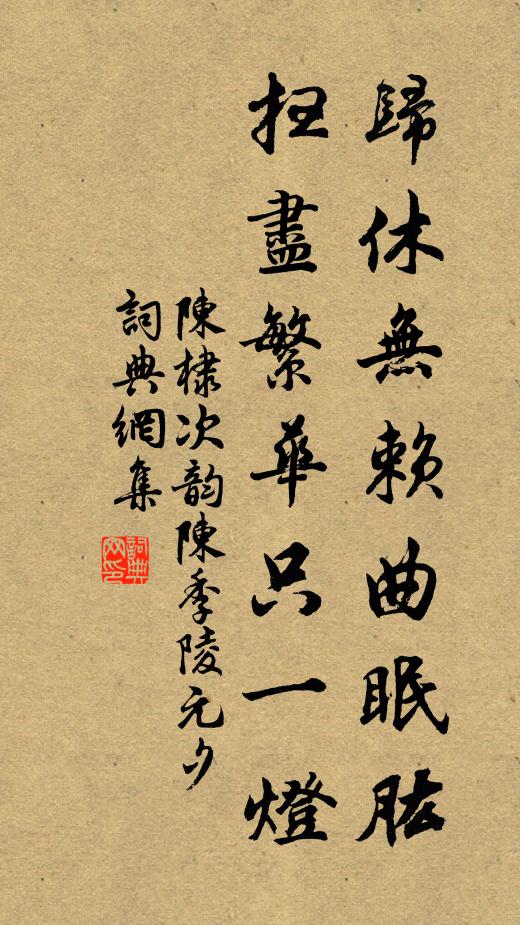 歸休無賴曲眠肱
扫盡繁華只一燈
陳棣次韵陳季陵元夕
詞典網集
詞典
网印